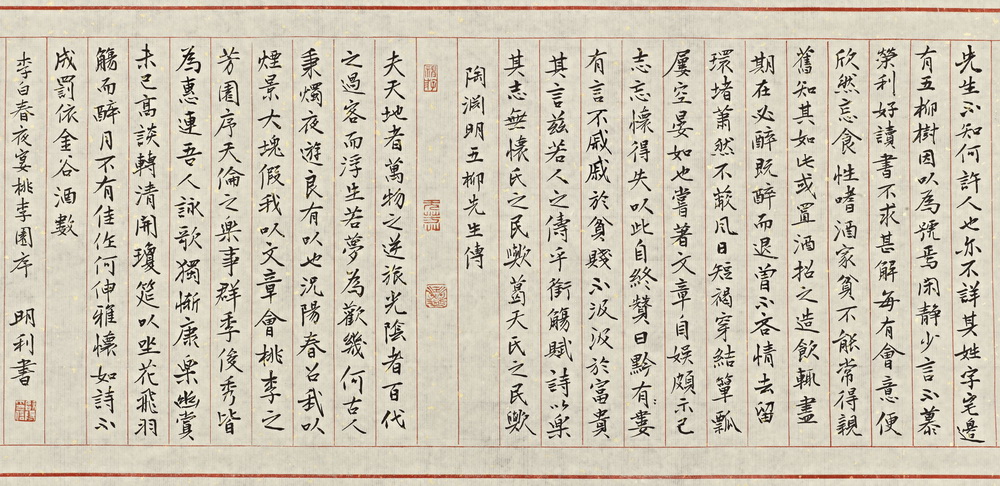 先生不知何許人也亦不詳其姓字宅邊
有五柳樹因以為號焉閑静少言不慕
榮利好讀書不求甚解每有會意便
欣然忘食性嗜酒家貧不能常得親
舊知其如此或置酒招之造飲輒盡
期在必醉既醉而退曾不吝情去留
環堵蕭然不蔽風日短褐穿結簞瓢
屢空晏如也嘗著文章自娛頗示己
志忘懷得失以此自終贊曰黔有婁
有言不戚戚於貧賤不汲汲於富貴
其言茲若人之儔乎銜觴賦詩以樂
其志無懷氏之民歟葛天氏之民歟
陶渊明五柳先生傳
夫天地者萬物之逆旅光陰者百代
之過客而浮生若夢為歡幾何古人
秉燭夜遊良有以也況陽春召我以
煙景大塊假我以文章會桃李之
芳園序天倫之樂事群季俊秀皆
為惠連吾人詠歌獨慚康樂幽賞
未已高談轉清開瓊筵以坐花飛羽
觴而醉月不有佳作何伸雅懷如詩不
成罰依金谷酒數
李白春夜宴桃李園序 明利書